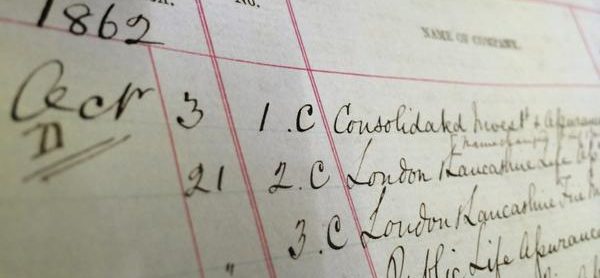 1862
No.
NAME OF COMPANY.
3 1.C Consolidated Invest & Assurance
21 2.C London & Lancashire Life
" 3.C London & Lancashire Fire
Public Life Assurance